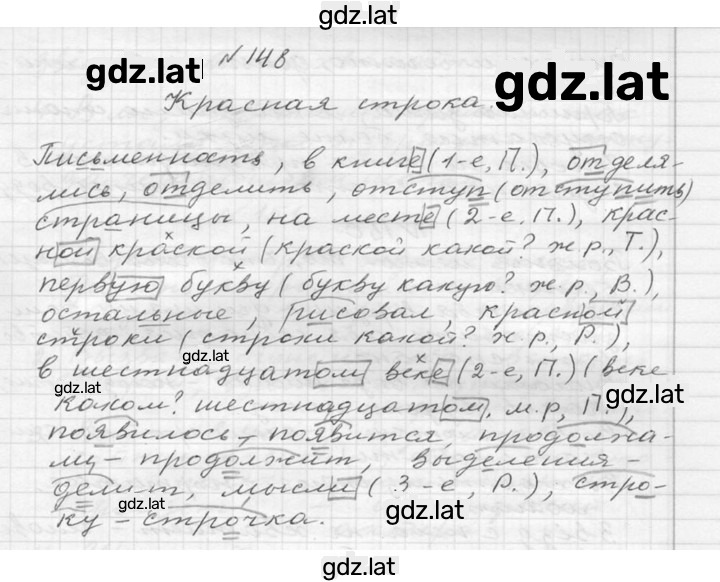 gdz.lat
№ 148
gdz.lat
gdz.lat
Красная строка.
Письменность, в книге (1-е, П.), отделя-
лись, отделить, отступ (отступить)
страницы, на месте (2-е, П.), крас-
ной краской (краской какой? ж.р., Т.),
первую букву (букву какую? ж.р., В.),
остальные, рисовал, красной
строки (строки какой? ж.р., Р.),
gdz.lat
в шестнадцатом веке (2-е, П.) (веке
gdz.lat
gdz.lat
каком? шестнадцатом, м.р., П.),
появилось - появится, продолжа-
ли - продолжит, выделения -
делит, мысли (3-е, Р.), стро-
gdz.lat
gdz.lat
ку - строчка.
gdz.lat